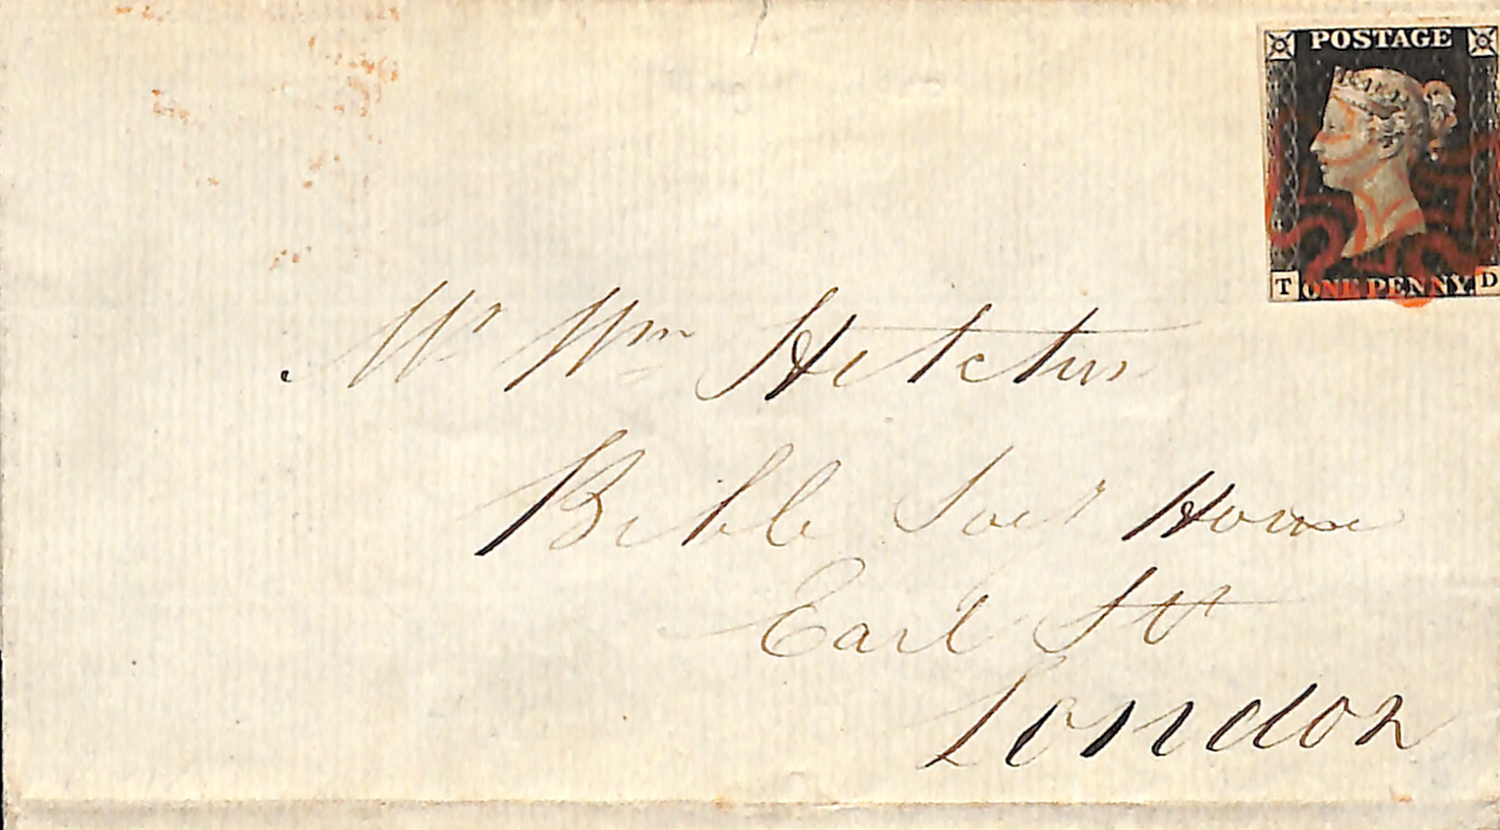 POSTAGE
T ONE PENNY D
Mr Wm Hitchin
Bible Socy House
Earl St
London